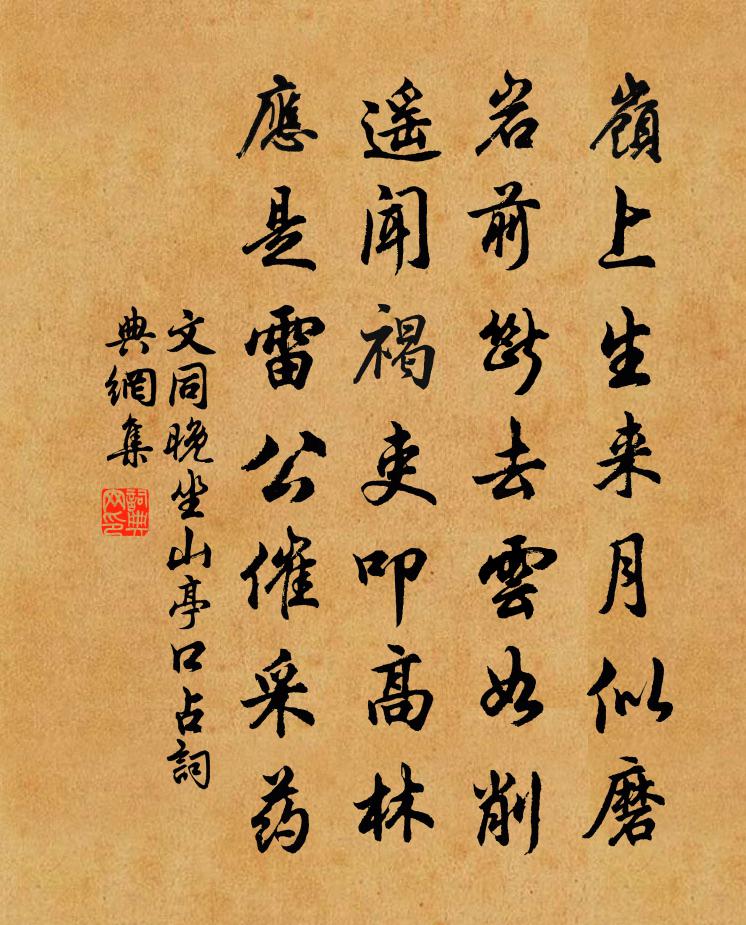 嶺上生来月似磨
岩前斷去雲如削
遥聞褐吏叩高林
應是雷公催采药
文同晚坐山亭口占詞
典網集
詞典網印